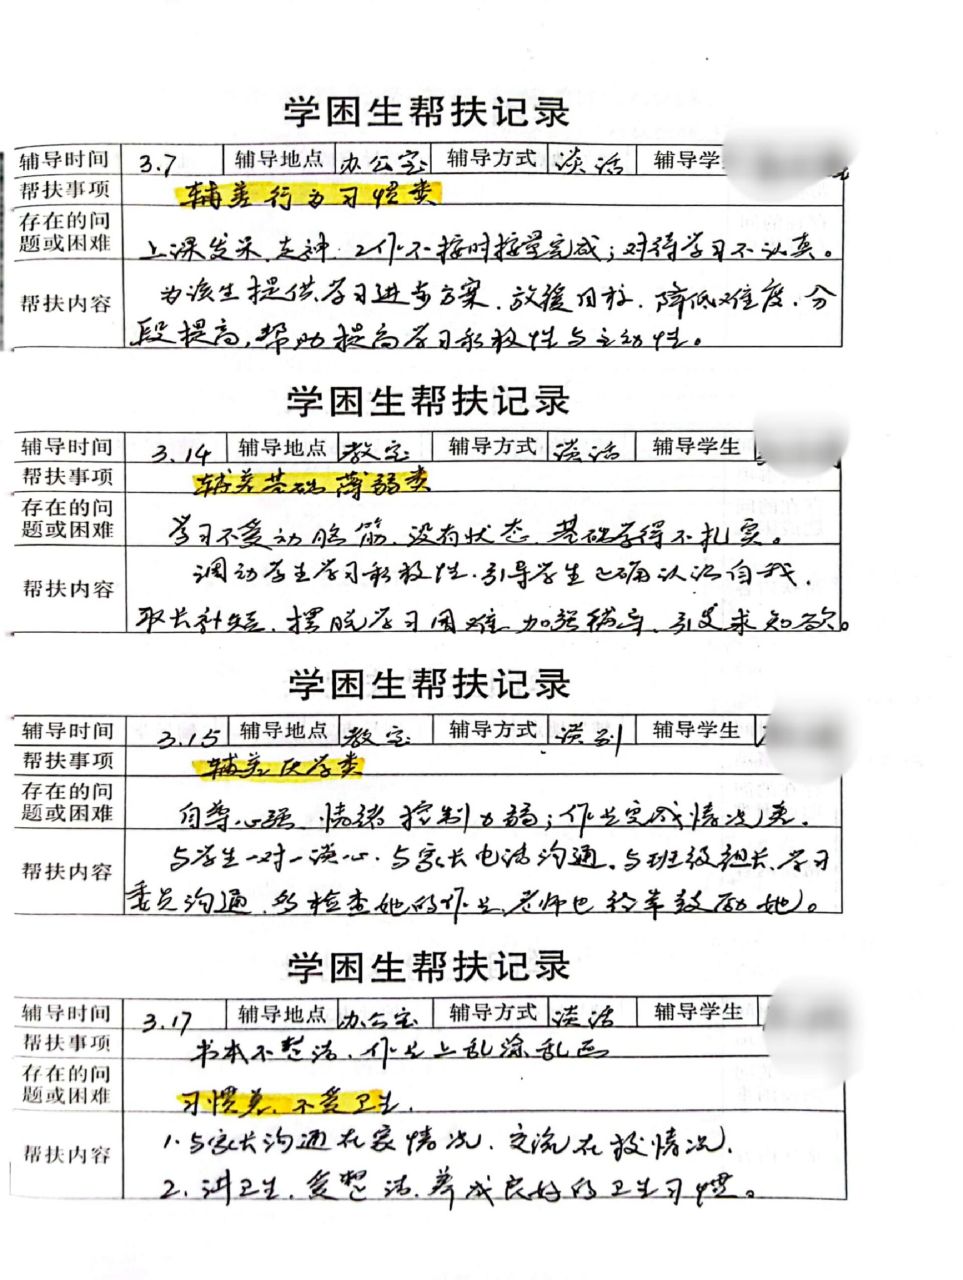 学困生帮扶记录
辅导时间 3.7 辅导地点 办公室 辅导方式 谈话 辅导学
帮扶事项 辅差行为习惯类
存在的问题或困难 上课发呆、走神、工作不按时按量完成；对待学习不认真。
帮扶内容 为该生提供学习进步方案、放缓目标、降低难度、分
段提高，帮助提高学习积极性与主动性。
学困生帮扶记录
辅导时间 3.14 辅导地点 教室 辅导方式 谈话 辅导学生
帮扶事项 辅差基础薄弱类
存在的问题或困难 学习不爱动脑筋、没有状态、基础学得不扎实。
帮扶内容 调动学生学习积极性、引导学生正确认识自我、
取长补短、摆脱学习困难、加强辅导、引发求知欲。
学困生帮扶记录
辅导时间 3.15 辅导地点 教室 辅导方式 谈 辅导学生
帮扶事项 辅差厌学类
存在的问题或困难 自尊心强、情绪控制力弱；作业完成情况差。
帮扶内容 与学生一对一谈心、与家长电话沟通、与班级组长、学习
委员沟通、多检查她的作业、老师也 鼓励她。
学困生帮扶记录
辅导时间 3.17 辅导地点 办公室 辅导方式 谈话 辅导学生
帮扶事项 书本不整洁、作业上乱涂乱画
存在的问题或困难 习惯差、不爱卫生。
帮扶内容 1.与家长沟通在家情况、交流在校情况。
2.讲卫生、爱整洁、养成良好的卫生习惯。